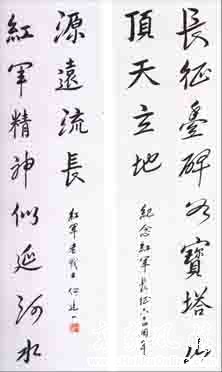 長征豐碑如寶塔山
頂天立地
紀念紅軍長征六十周年
紅軍精神似延河水
源遠流長
紅軍老戰士